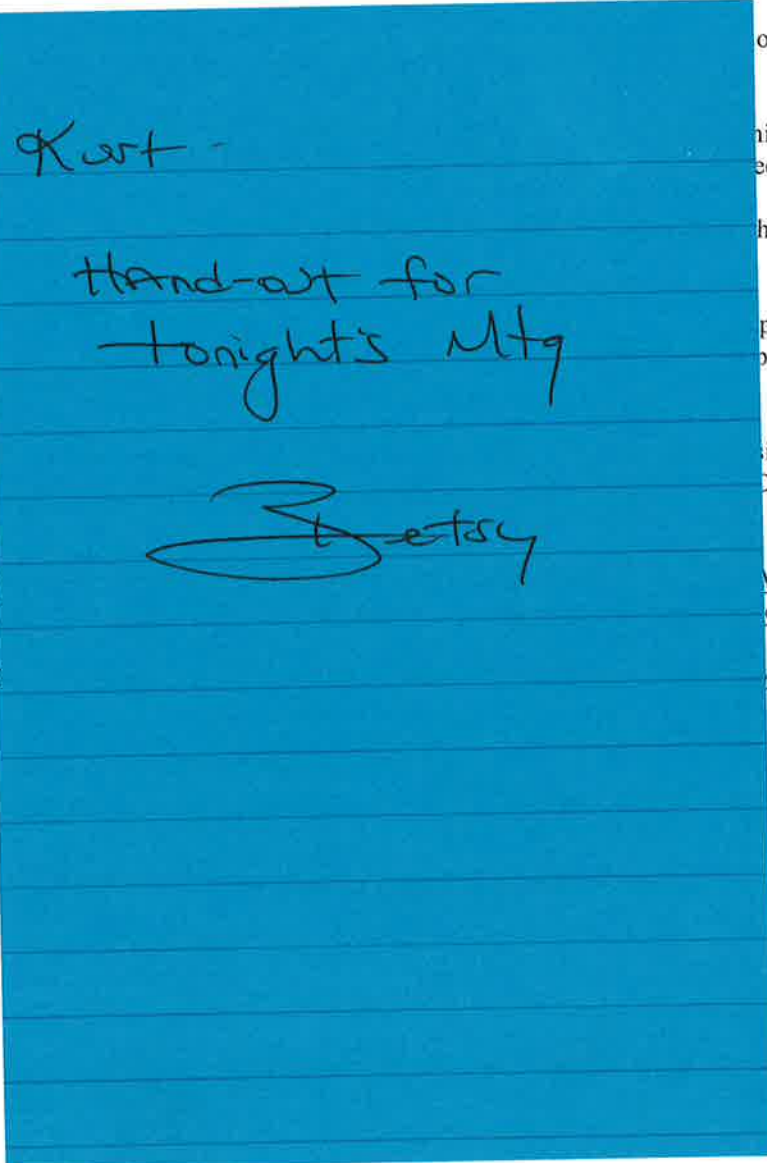 Kurt -
Hand-out for
tonight's Mtg
Betsy